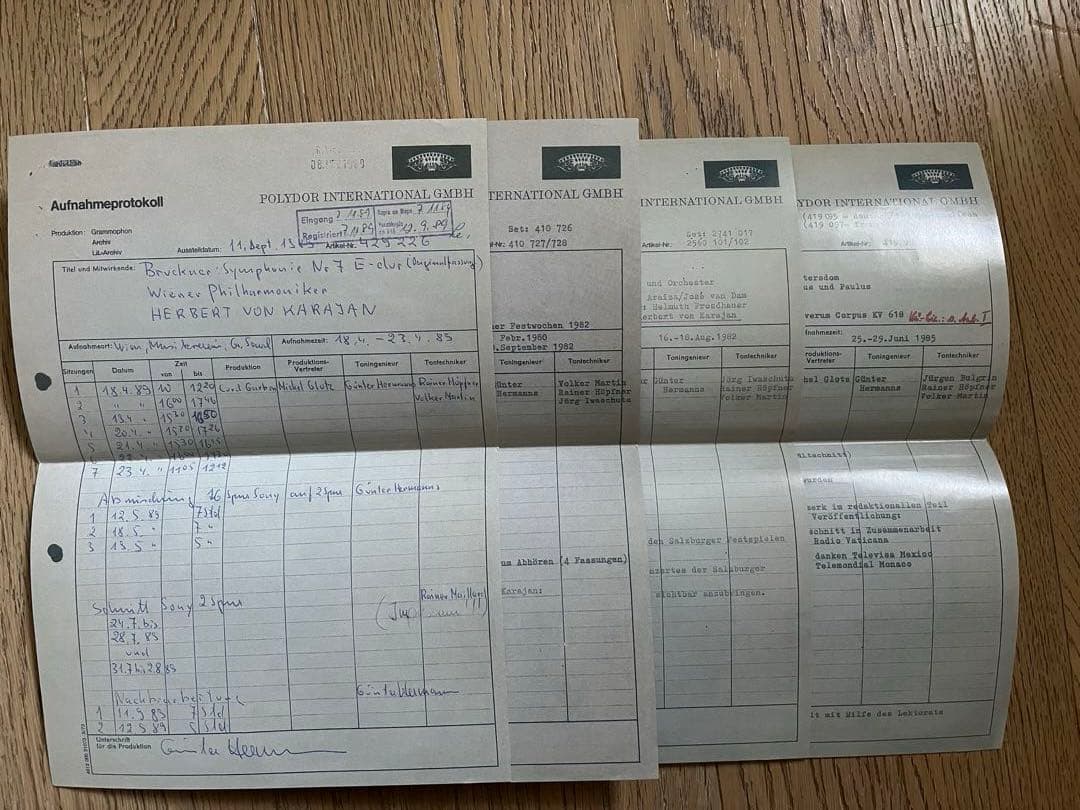 Aufnahmeprotokoll
POLYDOR INTERNATIONAL GMBH
Produktion: Grammophon
Archiv
Lit.-Archiv
Ausstelldatum: 11. Sept. Artikel-Nr. 429 226
Eingang
Registriert
Titel und Mitwirkende: Bruckner: Symphonie Nr 7 E-dur (Originalfassung)
Wiener Philharmoniker
HERBERT VON KARAJAN
Aufnahmeort: Wien, Musikverein, Gr. Saal Aufnahmezeit: 18.4. – 23.4.89
Sitzungen Datum Zeit von bis Produktion Produktions-Vertreter Toningenieur Tontechniker
1 18.4.89 10 1220 Michel Glotz Günter Hermanns Rainer Höpfner
2 " " " 1600 1746 Volker Martin
3 19.4. " 1530 1650
4 20.4. " 1530 1726
5 21.4. " 1530
7 23 4. " 1105 1212
Abmischung 16 Spur Sony auf 2 Spur Günter Hermanns
1 12.5.89 7 Std
2 18.5. " 7 "
3 19.5. " 5 "
Schnitt Sony 2 Spur Rainer Maillard
24.7. bis
28.7.89
und
31.7 bis 2.8.89
Nachbearbeitung Günter Hermanns
1 11.9.89 7 Std
2 12.9.89 5 Std
Unterschrift
für die Produktion
TERNATIONAL GMBH
Set: 410 726
-Nr: 410 727/728
er Festwochen 1982
Febr. 1980
.September 1982
Toningenieur Tontechniker
ünter Volker Martin
Hermanns Rainer Höpfner
Jörg Iwaschuta
um Abhören (4 Fassungen)
Karajan:
INTERNATIONAL GMBH
Set: 2741 017
Artikel-Nr: 2560 101/102
und Orchester
Araiza/José van Dam
: Helmuth Froschauer
erbert von Karajan
16.-18.Aug.1982
Toningenieur Tontechniker
Günter Jörg Iwaschuta
Hermanns Rainer Höpfner
Volker Martin
den Salzburger Festspielen
nzertes der Salzburger
sichtbar anzubringen.
YDOR INTERNATIONAL GMBH
(419 095
(419 097
Artikel-Nr.
tersdom
us und Paulus
verum Corpus KV 618
fnahmezeit: 25.-29.Juni 1985
roduktions-Vertreter Toningenieur Tontechniker
hel Glotz Günter Jürgen Bulgrin
Hermanns Rainer Höpfner
Volker Martin
itschnitt)
wurden
erk im redaktionellen Teil
Veröffentlichung:
schnitt in Zusammenarbeit
Radio Vaticana
danken Televisa Mexico
Telemondial Monaco
it mit Hilfe des Lektorats